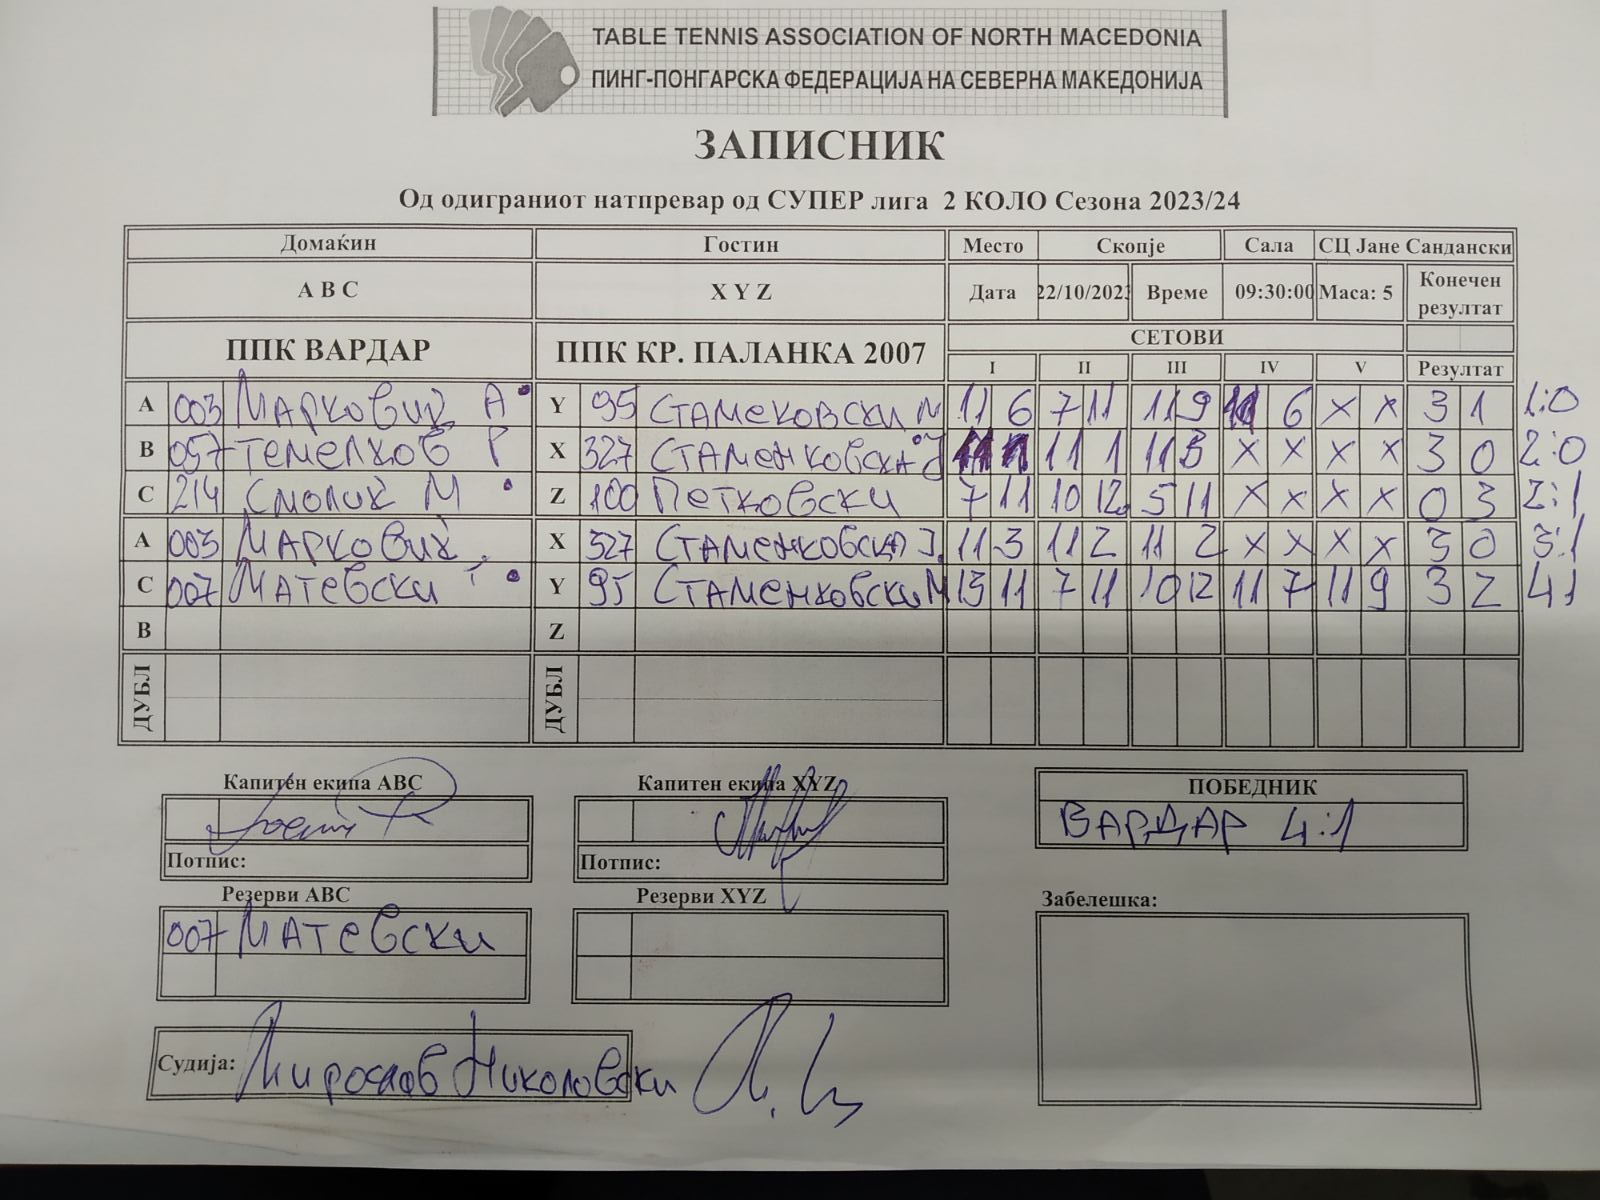 TABLE TENNIS ASSOCIATION OF NORTH MACEDONIA
ПИНГ-ПОНГАРСКА ФЕДЕРАЦИЈА НА СЕВЕРНА МАКЕДОНИЈА
ЗАПИСНИК
Од одиграниот натпревар од СУПЕР лига 2 КОЛО Сезона 2023/24
Домаќин Гостин Место Скопје Сала СЦ Јане Сандански
A B C X Y Z Дата 22/10/2023 Време 09:30:00 Маса: 5 Конечен резултат
ППК ВАРДАР ППК КР. ПАЛАНКА 2007 СЕТОВИ
I II III IV V Резултат
A 003 Марковиќ А Y 95 Стамековски М 11 6 7 11 11 9 11 6 X X 3 1 1:0
B 057 Темелков Г X 327 Стаменковска Ј 11 1 11 3 X X X X 3 0 2:0
C 214 Смолиќ М Z 100 Петковски 7 11 10 12 5 11 X X X X 0 3 2:1
A 003 Марковиќ X 327 Стаменковска Ј. 11 3 11 2 11 2 X X X X 3 0 3:1
C 007 Матевски Y 95 Стаменковски М 13 11 7 11 10 12 11 7 11 9 3 2 4:1
B Z
ДУБЛ ДУБЛ
Капитен екипа ABC Капитен екипа XYZ ПОБЕДНИК
ВАРДАР 4:1
Потпис: Потпис:
Резерви ABC Резерви XYZ Забелешка:
007 Матевски
Судија: Мирослав Николовски